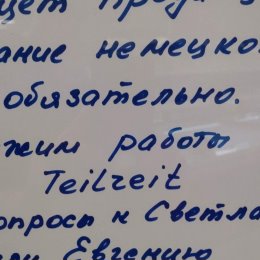 ание немецко
обязательно.
жим работы
Teilzeit
опросы к Светла
Евгению